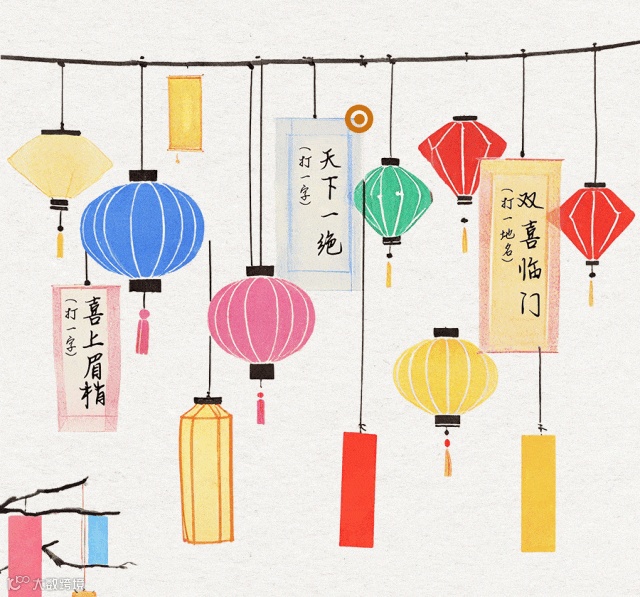 喜上眉梢
(打一字)
天下一绝
(打一字)
双喜临门
(打一地名)
大数跨境